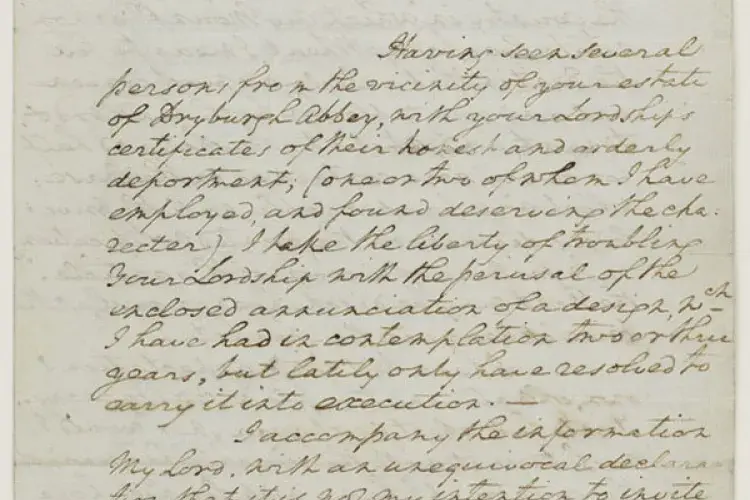 Having seen several
persons from the vicinity of your estate
of Dryburgh Abbey, with your Lordship's
certificates of their honest and orderly
deportment; (one or two of whom I have
employed, and found deserving the cha-
recter) I take the liberty of troubling
Your Lordship with the perusal of the
enclosed annunciation of a design, wch
I have had in contemplation two or three
years, but lately only have resolved to
carry it into execution. —
I accompany the information
My Lord, with an unequivocal declara
tion that it is not my intention to invite